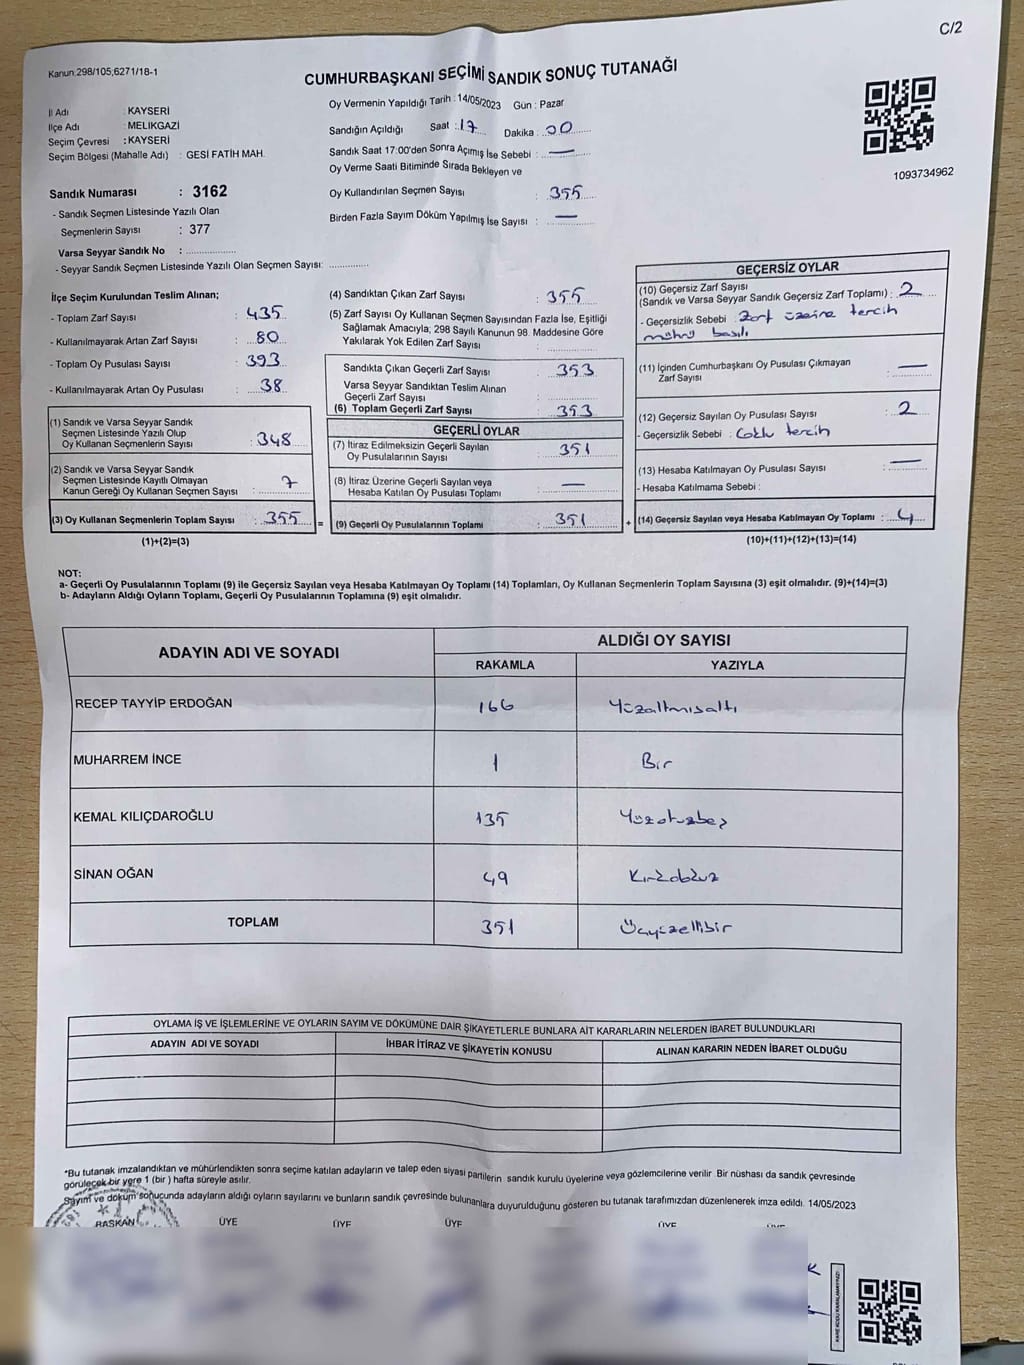 C/2
Kanun:298/105;6271/18-1
CUMHURBAŞKANI SEÇİMİ SANDIK SONUÇ TUTANAĞI
İl Adı : KAYSERİ
İlçe Adı : MELİKGAZİ
Seçim Çevresi : KAYSERİ
Seçim Bölgesi (Mahalle Adı) : GESİ FATİH MAH.
Sandık Numarası : 3162
- Sandık Seçmen Listesinde Yazılı Olan
Seçmenlerin Sayısı : 377
Varsa Seyyar Sandık No : ..................
- Seyyar Sandık Seçmen Listesinde Yazılı Olan Seçmen Sayısı: ..............
Oy Vermenin Yapıldığı Tarih : 14/05/2023 Gün : Pazar
Sandığın Açıldığı Saat : 17 Dakika : 00
Sandık Saat 17:00'den Sonra Açımış İse Sebebi : —
Oy Verme Saati Bitiminde Sırada Bekleyen ve
Oy Kullandırılan Seçmen Sayısı : 355
Birden Fazla Sayım Döküm Yapılmış İse Sayısı : —
1093734962
İlçe Seçim Kurulundan Teslim Alınan;
- Toplam Zarf Sayısı : 435
- Kullanılmayarak Artan Zarf Sayısı : 80
- Toplam Oy Pusulası Sayısı : 393
- Kullanılmayarak Artan Oy Pusulası : 38
(1) Sandık ve Varsa Seyyar Sandık
Seçmen Listesinde Yazılı Olup
Oy Kullanan Seçmenlerin Sayısı : 348
(2) Sandık ve Varsa Seyyar Sandık
Seçmen Listesinde Kayıtlı Olmayan
Kanun Gereği Oy Kullanan Seçmen Sayısı : 7
(3) Oy Kullanan Seçmenlerin Toplam Sayısı : 355 =
(1)+(2)=(3)
(4) Sandıktan Çıkan Zarf Sayısı : 355
(5) Zarf Sayısı Oy Kullanan Seçmen Sayısından Fazla İse, Eşitliği
Sağlamak Amacıyla; 298 Sayılı Kanunun 98. Maddesine Göre
Yakılarak Yok Edilen Zarf Sayısı : ..............
Sandıkta Çıkan Geçerli Zarf Sayısı : 353
Varsa Seyyar Sandıktan Teslim Alınan
Geçerli Zarf Sayısı : ..............
(6) Toplam Geçerli Zarf Sayısı : 353
GEÇERLİ OYLAR
(7) İtiraz Edilmeksizin Geçerli Sayılan
Oy Pusulalarının Sayısı : 351
(8) İtiraz Üzerine Geçerli Sayılan veya
Hesaba Katılan Oy Pusulası Toplamı : —
(9) Geçerli Oy Pusulalarının Toplamı : 351 +
GEÇERSİZ OYLAR
(10) Geçersiz Zarf Sayısı
(Sandık ve Varsa Seyyar Sandık Geçersiz Zarf Toplamı) : 2
- Geçersizlik Sebebi : Zarf üzeine tercih
mührü basılı
(11) İçinden Cumhurbaşkanı Oy Pusulası Çıkmayan
Zarf Sayısı : —
(12) Geçersiz Sayılan Oy Pusulası Sayısı : 2
- Geçersizlik Sebebi : Çoklu tercih
(13) Hesaba Katılmayan Oy Pusulası Sayısı : —
- Hesaba Katılmama Sebebi :
(14) Geçersiz Sayılan veya Hesaba Katılmayan Oy Toplamı : 4
(10)+(11)+(12)+(13)=(14)
NOT:
a- Geçerli Oy Pusulalarının Toplamı (9) ile Geçersiz Sayılan veya Hesaba Katılmayan Oy Toplamı (14) Toplamları, Oy Kullanan Seçmenlerin Toplam Sayısına (3) eşit olmalıdır. (9)+(14)=(3)
b- Adayların Aldığı Oyların Toplamı, Geçerli Oy Pusulalarının Toplamına (9) eşit olmalıdır.
ADAYIN ADI VE SOYADI ALDIĞI OY SAYISI
RAKAMLA YAZIYLA
RECEP TAYYİP ERDOĞAN 166 Yüzaltmışaltı
MUHARREM İNCE 1 Bir
KEMAL KILIÇDAROĞLU 135 Yüzotuzbeş
SİNAN OĞAN 49 Kırkdokuz
TOPLAM 351 Üçyüzellibir
OYLAMA İŞ VE İŞLEMLERİNE VE OYLARIN SAYIM VE DÖKÜMÜNE DAİR ŞİKAYETLERLE BUNLARA AİT KARARLARIN NELERDEN İBARET BULUNDUKLARI
ADAYIN ADI VE SOYADI İHBAR İTİRAZ VE ŞİKAYETİN KONUSU ALINAN KARARIN NEDEN İBARET OLDUĞU
*Bu tutanak imzalandıktan ve mühürlendikten sonra seçime katılan adayların ve talep eden siyasi partilerin sandık kurulu üyelerine veya gözlemcilerine verilir. Bir nüshası da sandık çevresinde
görülecek bir yere 1 (bir ) hafta süreyle asılır.
Sayım ve döküm sonucunda adayların aldığı oyların sayılarını ve bunların sandık çevresinde bulunanlara duyurulduğunu gösteren bu tutanak tarafımızdan düzenlenerek imza edildi. 14/05/2023
BAŞKAN ÜYE ÜYE ÜYE ÜYE
KARE KODU KARALAMAYINIZ!